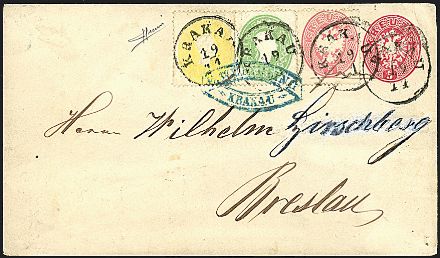 KRAKAU
19
11
KRAKAU
19
11
KRAKAU
19
11
KRAKAU
11
KRAKAU
Herrn Wilhelm Hirschberg
Breslau